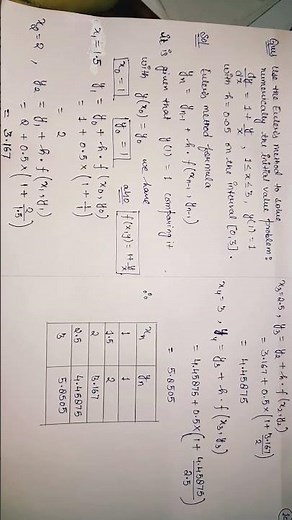 Ques Use the Euler's method to solve
numerically the initial value problem:
dy/dx = 1 + y/x , 1 ≤ x ≤ 3 , y(1) = 1
with h = 0.05 on the interval [0,3].
Sol Euler's method formula
yn = yn-1 + h · f(xn-1, yn-1)
It is given that y(1) = 1 comparing it
with y(x0) = y0 we have
x0 = 1 y0 = 1 also f(x,y) = 1 + y/x
x1 = 1.5 y1 = y0 + h · f(x0, y0)
= 1 + 0.5 × (1 + 1/1)
= 2
x2 = 2 , y2 = y1 + h · f(x1, y1)
= 2 + 0.5 × (1 + 2/1.5)
= 3.167
x3 = 2.5 , y3 = y2 + h · f(x2, y2)
= 3.167 + 0.5 × (1 + 3.167/2)
= 4.45875
x4 = 3 , y4 = y3 + h · f(x3, y3)
= 4.45875 + 0.5 × (1 + 4.45875/2.5)
= 5.8505
∴
xn yn
1 1
1.5 2
2 3.167
2.5 4.45875
3 5.8505